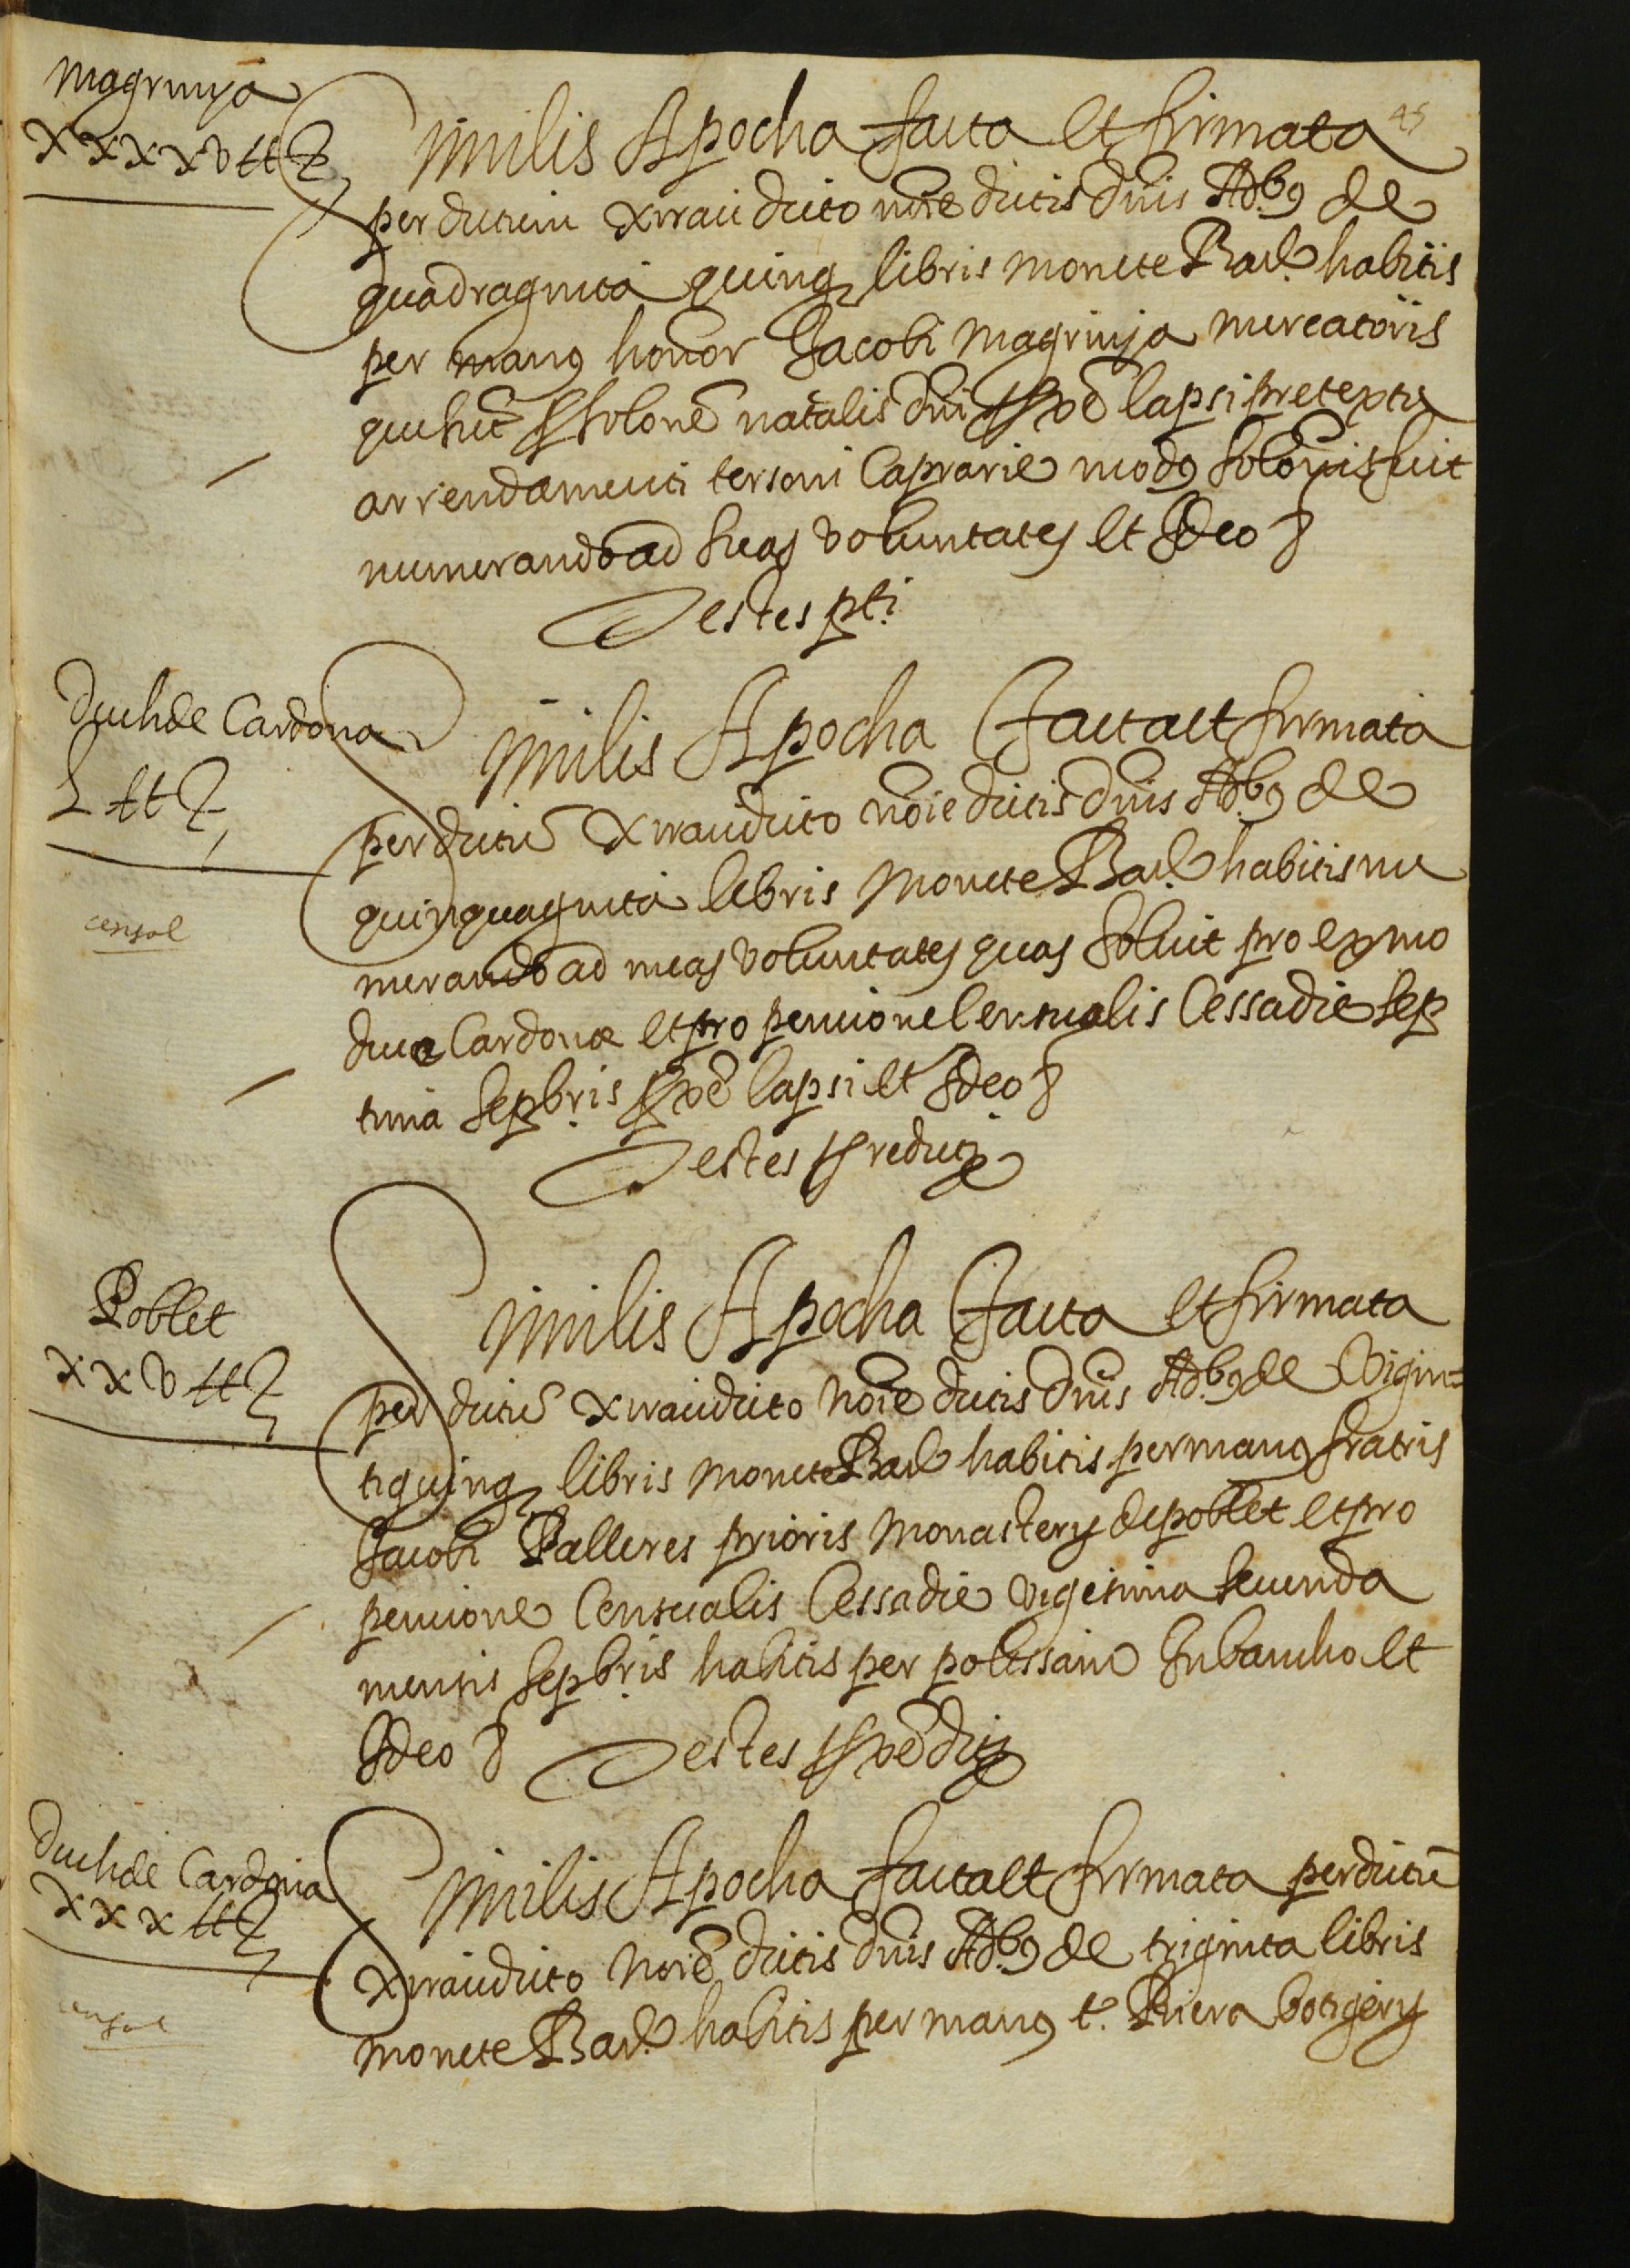 Magrinya
XXXXV ll
45
Similis Apocha facta et firmata
per dictum Xirau dicto noīe dictis dnis Adb9 de
quadraginta quinq libris monete Bar. habitis
per man9 honor Jacobi Magrinya mercatoris
natalis dni lapsi pretextu
arrendamenti tersoni Caprarie mod9 solonis fuit
numerando ad suas voluntates et Ideo &
Testes pti
Duch de Cardona
L ll
censal
Similis Apocha facta et firmata
per dictū Xirau dicto noīe dictis dnis Adb9 de
quinquaginta libris monete Bar. habitis nu
merando ad meas voluntates quas soluit pro exmo
duce Cardonæ et pro pencione Censualis Cessa die sep
tima sepbris lapsi et Ideo &
Testes predicti
Poblet
XXV ll
Similis Apocha facta et firmata
per dictū Xirau dicto noīe dictis dnis Adb9 de Vigin=
ti quinq libris monete Bar habitis per man9 fratris
Jacobi Palleres prioris Monastery de poblet et pro
pencione Censualis Cessa die vigesima secunda
mensis sepbris habitis per polissam In bancho et
Ideo & Testes predicti
Duch de Cardona
XXX ll
censal
Similis Apocha facta et firmata per dictū
Xirau dicto noīe dictis dnis Adb9 de triginta libris
monete Bar. habitis per man9 t. Riera botigery